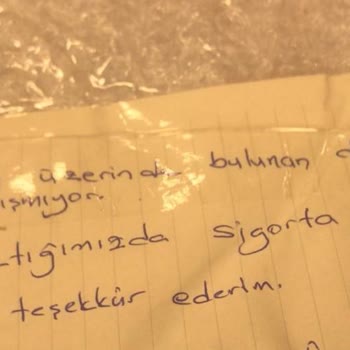 üzerinde bulunan
ışmıyor.
tığımızda sigorta
teşekkür ederim.